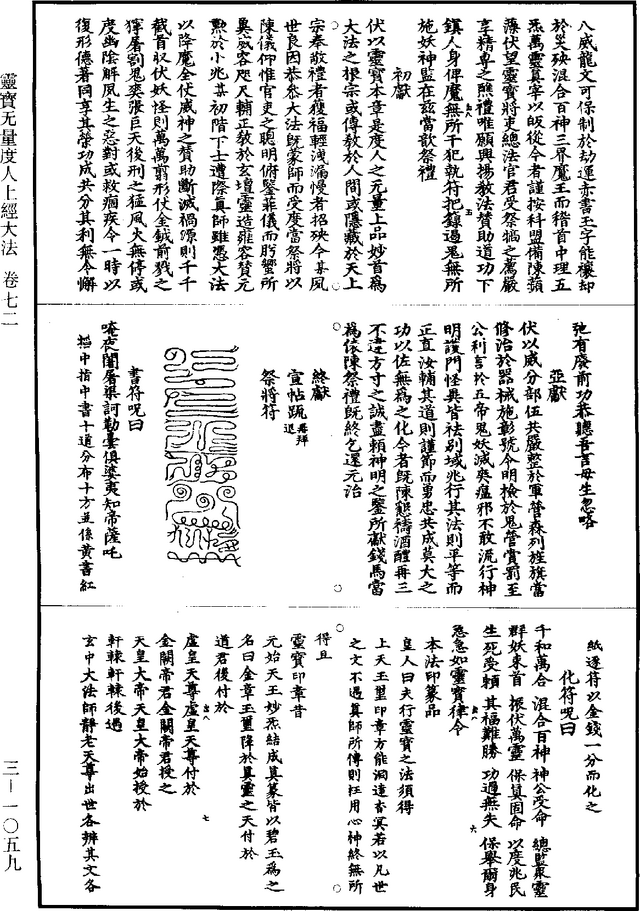 八威龍文可保制於劫運赤書玉字能禳却
於災殃混合百神三界魔王而稽首中理五
炁萬靈真宰以皈從今者謹按科盟備陳蘋
藻伏望靈寶將吏總法官君受祭犒之薦嚴
享精專之醮禮唯願興揚教法贊助道功下
鎮人身俾魔無所干犯執符把籙過鬼無所
施妖神監在兹當歆祭禮
初獻
伏以靈寶本章是度人之元量上品妙首爲
大法之根宗或傳敎於人間或隱藏於天上
宗奉敬禮者獲福輕淺漏慢者招殃今某夙
世良因恭叅大法旣蒙師而受度當祭將以
陳儀仰惟官吏之聰明俯鑒菲儀而肹蠁所
兾威容咫尺輔正敎於玄壇靈造雍容贊元
勲於小兆某初階下士遭際真師雖憑大法
以降魔全仗威神之贊助斷滅禍源則千千
截首収伏妖怪則萬萬翦形仗金鉞前戮之
獰屠劉鬼爽張巨天後刑之猛風火無停或
度幽陰解夙生之惡對或救痼疾令一時以
復形德著同享其榮功成共分其利無令懈
靈寶无量度人上經大法 卷七二
弛有廢前功恭聽吾言毋生忽略
亞獻
伏以威分部伍共嚴整於軍營森列旌旗當
修治於器械施彰號令明檢於鬼營賞罰至
公利害於五帝鬼妖滅爽瘟邪不敢流行神
明護門怪異皆祛别域兆行其法則平等而
正直汝輔其道則謹節而勇忠共成莫大之
功以佐無爲之化今者旣陳懇禱酒醴再三
不違方寸之誠盡賴神明之鑒所獻錢馬當
爲依陳祭禮旣終乞還元治
終獻
宣帖䟽再拜退
祭將符
書符呪曰
唵夜闍屠渠訶勤婁俱婆夷知帝薩吒
搯中指中書十道分布十方並係黃書紅
紙逐符以金錢一分而化之
化符呪曰
千和萬合 混合百神 神公受命 總監衆靈
群妖束首 振伏萬靈 保真固命 以度兆民
生死受賴 其福難勝 功過無失 保舉爾身
急急如靈寶律令
本法印篆品
皇人曰夫行靈寶之法須得
上天玉璽印章方能洞達杳冥若以凡世
之文不遇真師所傳則枉用心神終無所
得且
靈寶印章昔
元始天王妙炁結成真篆皆以碧玉爲之
名曰金章玉璽降於真靈之天付於
道君後付於
虛皇天尊虛皇天尊付於
金闕帝君金闕帝君授之
天皇大帝天皇大帝始授於
軒轅軒轅後過
玄中大法師靜老天尊出世各辨其文各
三—一〇五九